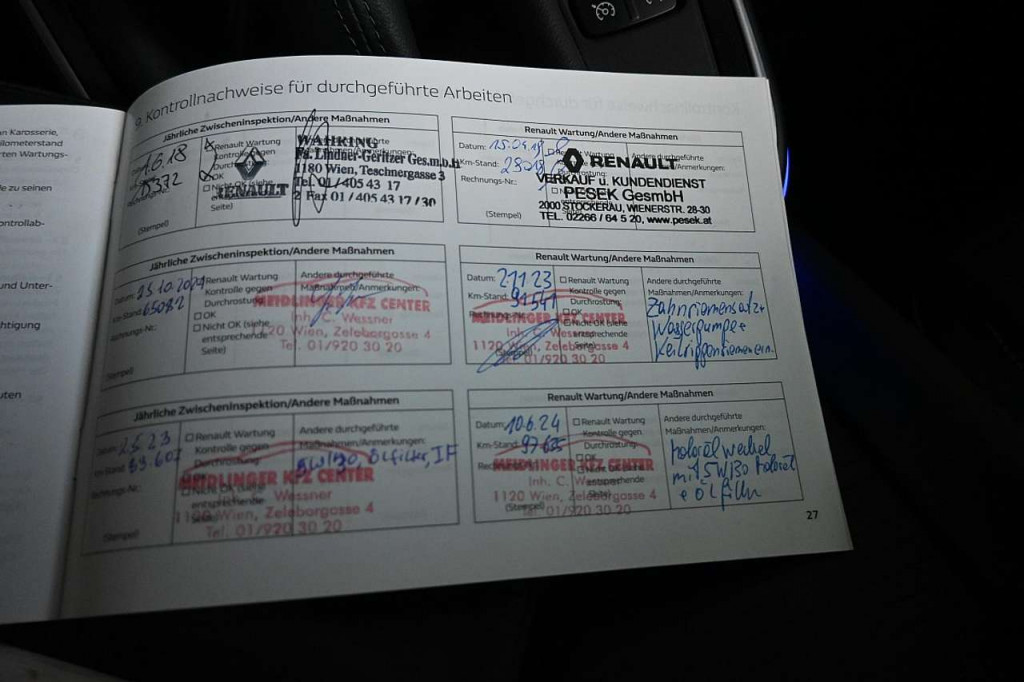 n Karosserie,
ilometerstand
rten Wartungs-
le zu seinen
ontrollab-
und Unter-
chtigung
uten
9. Kontrollnachweise für durchgeführte Arbeiten
Jährliche Zwischeninspektion/Andere Maßnahmen
1.6.18
Renault Wartung
Kontrolle gegen
OK
Nicht OK (siehe
Seite)
(Stempel)
RENAULT
WAHKING
Fs. Lindner-Geritzer Ges.m.b.H
1180 Wien, Teschnergasse 3
Tel. 01/405 43 17
Fax 01/405 43 17/30
Renault Wartung/Andere Maßnahmen
Datum:
Km-Stand:
Rechnungs-Nr.:
(Stempel)
RENAULT
VERKAUF u. KUNDENDIENST
PESEK GesmbH
2000 STOCKERAU, WIENERSTR. 28-30
TEL. 02266 / 64 5 20, www.pesek.at
Jährliche Zwischeninspektion/Andere Maßnahmen
Datum: 25.10.2021
Km-Stand: 65082
Rechnungs-Nr.:
(Stempel)
Renault Wartung
Kontrolle gegen
Durchrostung:
OK
Nicht OK (siehe
entsprechende
Seite)
Andere durchgeführte
Maßnahmen/Anmerkungen:
MEIDLINGER KFZ CENTER
Inh. C. Wessner
1120 Wien, Zeleborgasse 4
Tel. 01/920 30 20
Renault Wartung/Andere Maßnahmen
Datum: 2.11.23
Km-Stand: 91541
Rechnungs-Nr.:
(Stempel)
Renault Wartung
Kontrolle gegen
Durchrostung:
OK
Nicht OK (siehe
entsprechende
Seite)
MEIDLINGER KFZ CENTER
Inh. C. Wessner
1120 Wien, Zeleborgasse 4
Tel. 01/920 30 20
Andere durchgeführte
Maßnahmen/Anmerkungen:
Zahnriemensatz+
Wasserpumpe+
Keilrippenriemen ern.
Jährliche Zwischeninspektion/Andere Maßnahmen
Datum: 2.5.23
Km-Stand: 89.607
Rechnungs-Nr.:
(Stempel)
Renault Wartung
Kontrolle gegen
Durchrostung:
OK
Nicht OK (siehe
entsprechende
Seite)
Andere durchgeführte
Maßnahmen/Anmerkungen:
5W/30, Ölfilter, IF
MEIDLINGER KFZ CENTER
Inh. C. Wessner
1120 Wien, Zeleborgasse 4
Tel. 01/920 30 20
Renault Wartung/Andere Maßnahmen
Datum: 10.6.24
Km-Stand: 97.625
(Stempel)
Renault Wartung
Kontrolle gegen
Durchrostung:
OK
entsprechende
MEIDLINGER KFZ CENTER
Inh. C.
1120 Wien, Zeleborgasse 4
Tel. 01/920 30 20
Andere durchgeführte
Maßnahmen/Anmerkungen:
Motoröl wechsel
mit 5W/30 Motoröl
+ Öl filter
27